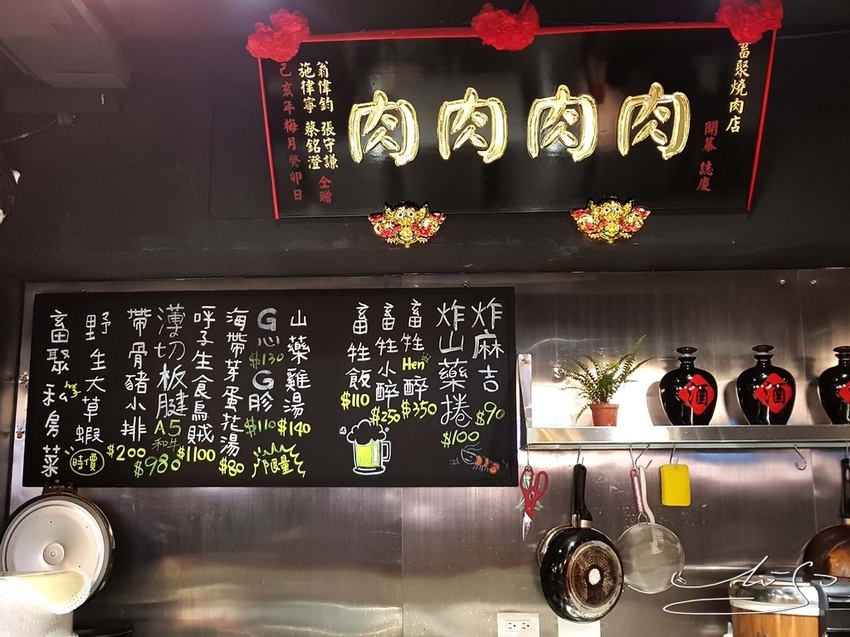 畜聚燒肉店
開幕 誌慶
肉肉肉肉
翁偉鈞 張守謙
施律寧 蔡銘澄 仝贈
己亥年梅月癸卯日
炸麻吉 $90
炸山藥捲 $100
畜牲Hen醉 $350
畜牲小醉 $250
畜牲飯 $110
山藥雞湯 $140
G心 $130 G胗 $110
限量
海帶芽蛋花湯 $80
呼子生食烏賊 $1100
薄切板腱 A5 和牛 $980
帶骨豬小排 $200
野生大草蝦 時價
畜聚私房菜
酒
酒
酒